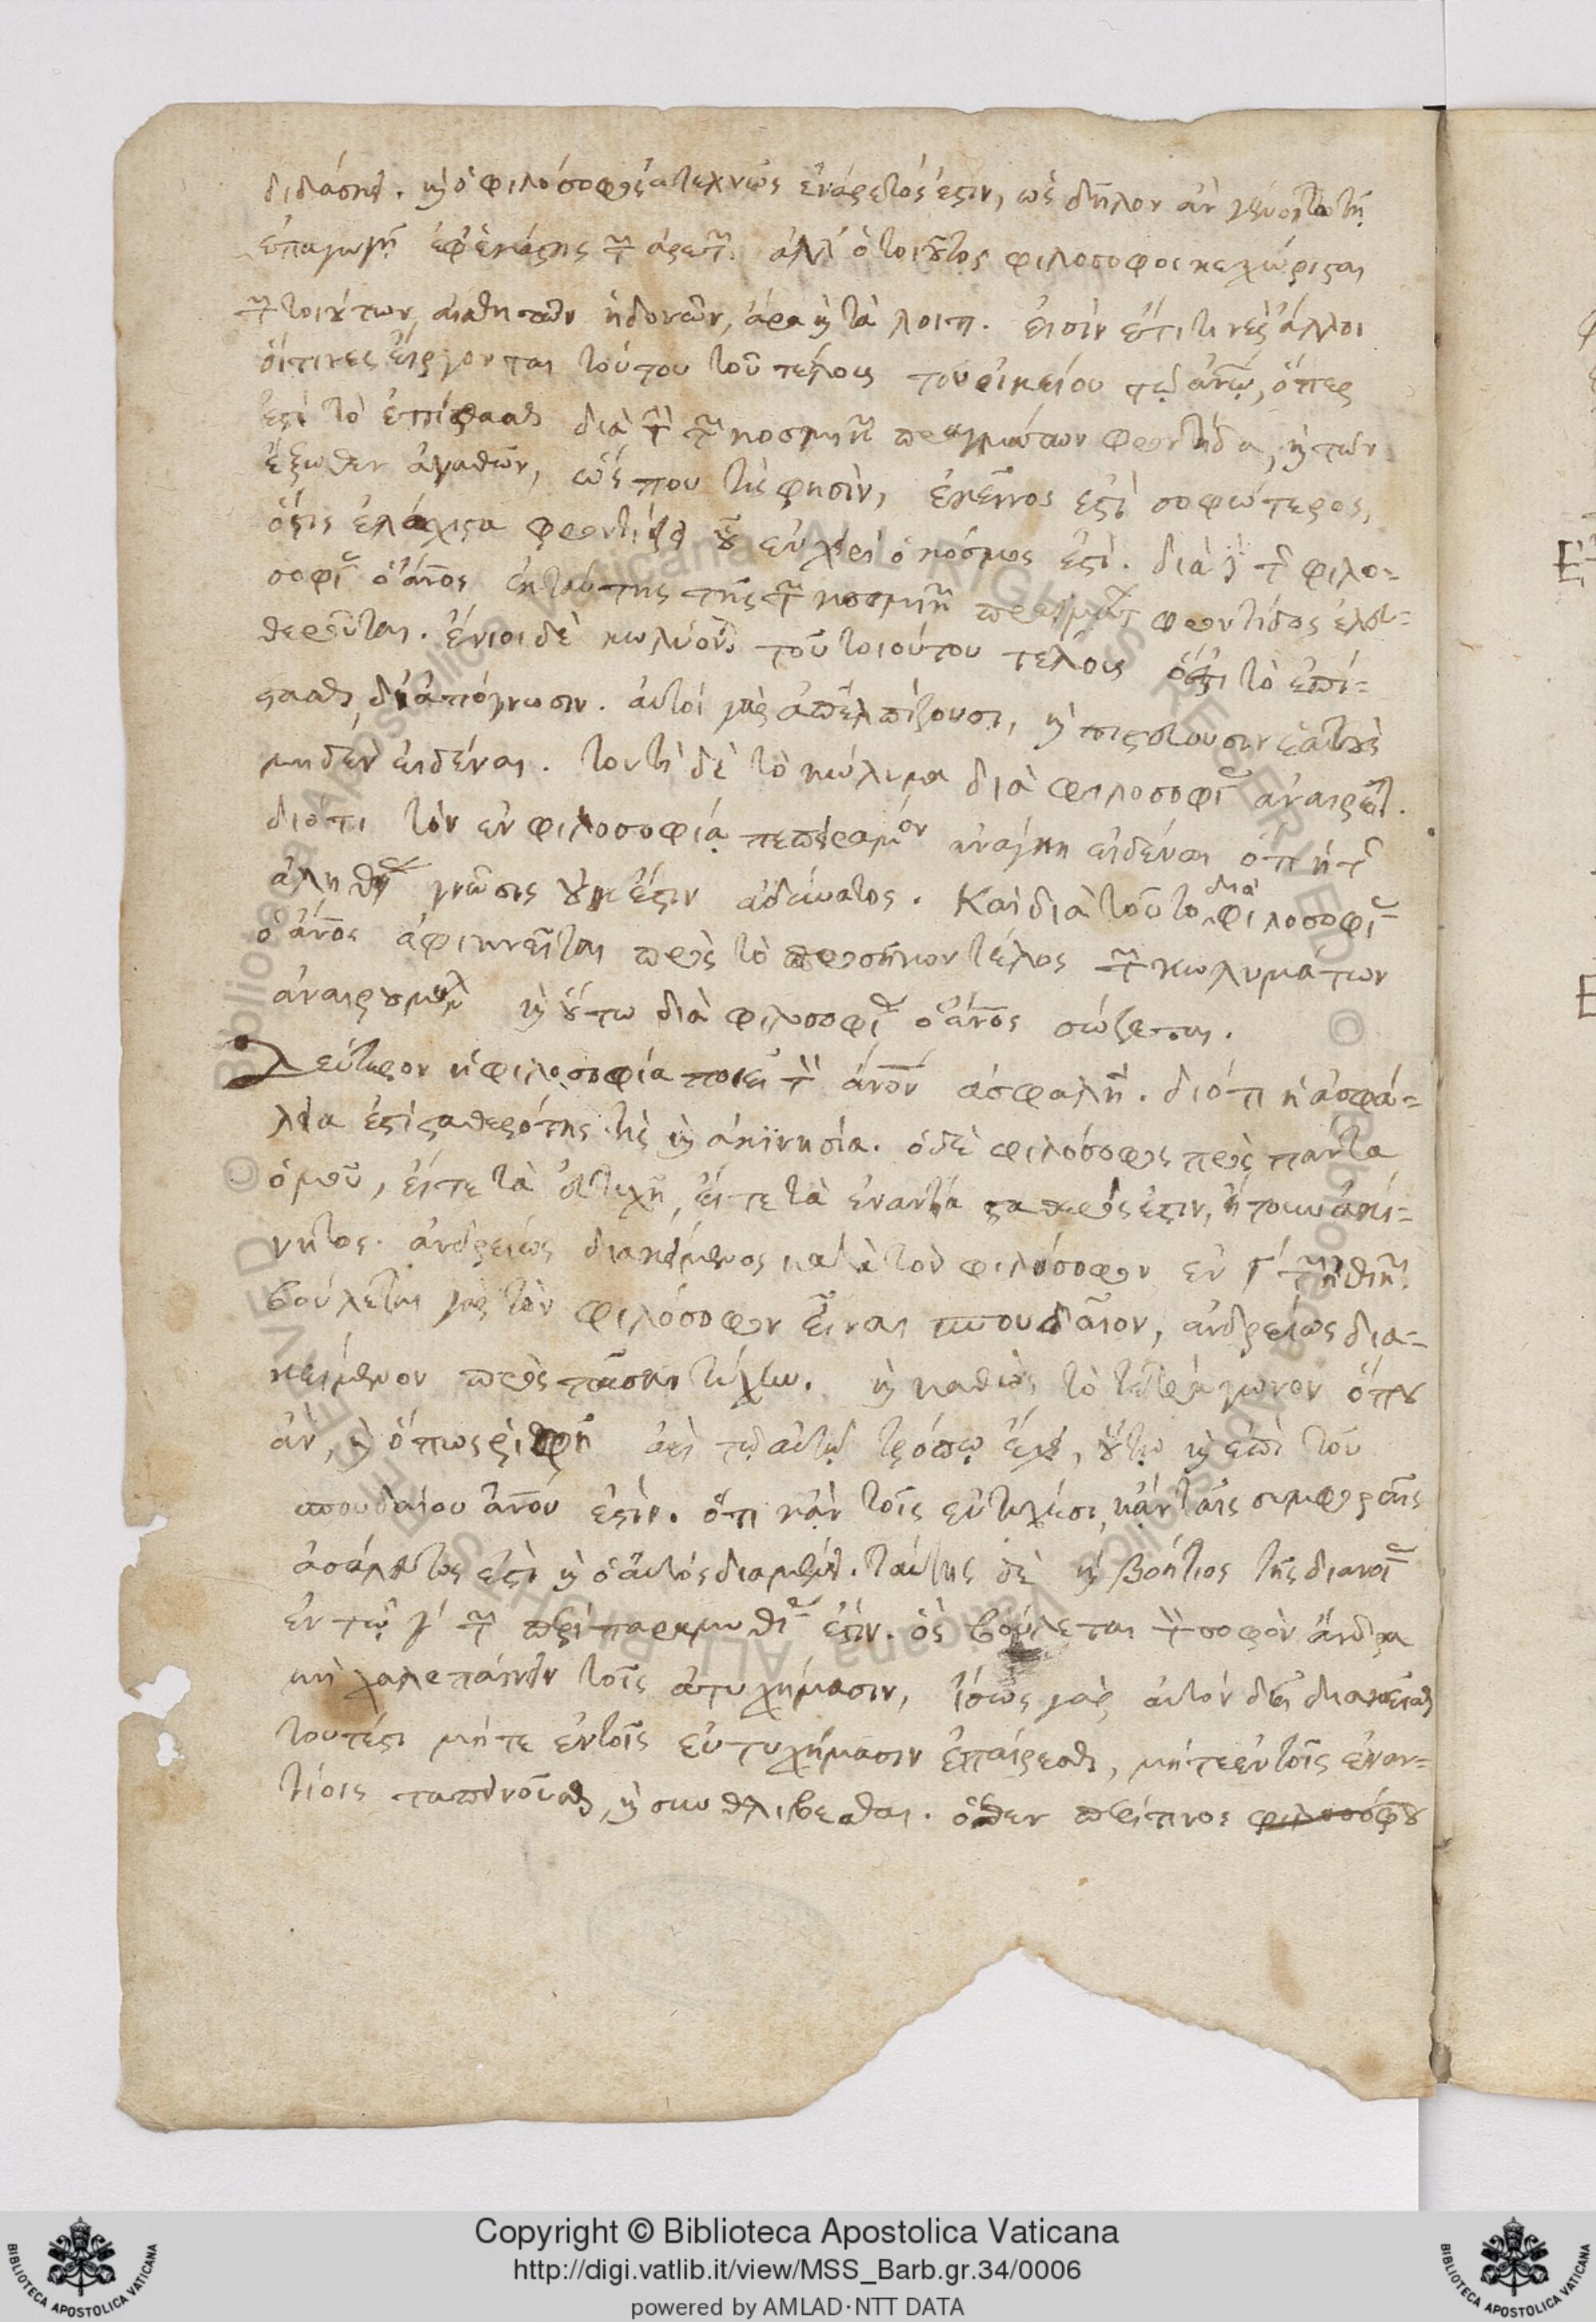 διδάσκει. καὶ ὁ φιλόσοφος ἀτεχνῶς ἐνάρετός ἐστιν, ὡς δῆλον ἂν γένοιτο τῇ
ἐπαγωγῇ ἐφ' ἑκάστης τῶν ἀρετῶν. ἀλλ' ὁ τοιοῦτος φιλόσοφος κεχώρισται
τῶν τοιούτων αἰσθητῶν ἡδονῶν, ἄρα καὶ τὰ λοιπ. εἰσὶν ἔτι τινὲς ἄλλοι
οἵτινες εἴργονται τούτου τοῦ τέλους τοῦ οἰκείου τῷ ἀνῳ, ὅπερ
ἐστὶ τὸ ἐπίστασθαι διὰ τὴν τῶν κοσμικῶν πραγμάτων φροντίδα, καὶ τῶν
ἔξωθεν ἀγαθῶν, ὥς που τὶς φησὶν, ἐκεῖνος ἐστὶ σοφώτερος,
ὅστις ἐλάχιστα φροντίζει οὗ ἐν χειρὶ ὁ κόσμος ἐστί. διὰ γὰρ τῆς φιλο-
σοφίας ὁ ἄνος ἐκ ταύτης τῆς τῶν κοσμικῶν πραγμάτων φροντίδος ἐλευ-
θεροῦται. ἔνιοι δὲ κωλύονται τοῦ τοιούτου τέλους ὅ ἐστι τὸ ἐπί-
στασθαι, δι' ἀπόγνωσιν. αὐτοὶ γὰρ ἀπελπίζουσι, καὶ πιστεύουσιν ἑαυτοὺς
μηδὲν εἰδέναι. τουτὶ δὲ τὸ κώλυμα διὰ φιλοσοφίας ἀναιρεῖται.
διότι τὸν ἐν φιλοσοφίᾳ πεπειραμένον ἀνάγκη εἰδέναι ὅτι ἡ τῆς
ἀληθείας γνῶσις οὐκ ἔστιν ἀδύνατος. Καὶ διὰ τοῦτο διὰ φιλοσοφίας
ὁ ἄνος ἀφικνεῖται πρὸς τὸ προσῆκον τέλος τῶν κωλυμάτων
ἀναιρουμένων καὶ οὕτω διὰ φιλοσοφίας ὁ ἄνος σώζεται.
Δεύτερον ἡ φιλοσοφία ποιεῖ τὸν ἄνον ἀσφαλῆ. διότι ἡ ἀσφά-
λεια ἐστὶ σταθερότης τὶς καὶ ἀκινησία. ὁ δὲ φιλόσοφος πρὸς πάντα
ὁμοῦ, εἴτε τὰ εὐτυχῆ, εἴτε τὰ ἐναντία σταθερός ἐστιν, ἤτοι ἀκί-
νητος. ἀνδρείως διακείμενος κατὰ τὸν φιλόσοφον ἐν γ' τῶν ἠθικῶν.
βούλεται γὰρ τὸν φιλόσοφον εἶναι σπουδαῖον, ἀνδρείως δια-
κείμενον πρὸς πᾶσαν τύχην. καὶ καθὼς τὸ τετράγωνον ὅπου
ἂν, καὶ ὅπως ῥιφῇ ἀεὶ τῷ αὐτῷ τρόπῳ ἔχει, οὕτω καὶ ἐπὶ τοῦ
σπουδαίου ἄνου ἐστὶν. ὅτι κἀν τοῖς εὐτυχέσι, κἀν ταῖς συμφοραῖς
ἀσάλευτος ἐστὶ καὶ ὁ αὐτὸς διαμένει. ταύτης δὲ καὶ βοήτιος τῆς διανοίας
ἐν τῷ γ' τῶν περὶ παραμυθίας ἐστίν. ὃς βούλεται τὸν σοφὸν ἄνδρα
μὴ χαλεπαίνειν τοῖς ἀτυχήμασιν, ἴσως γὰρ αὐτὸν δεῖ διακεῖσθαι
τουτέστι μήτε ἐν τοῖς εὐτυχήμασιν ἐπαίρεσθαι, μήτε ἐν τοῖς ἐναν-
τίοις ταπεινοῦσθαι, καὶ συνθλίβεσθαι. ὅθεν περί τινος φιλοσόφου
Copyright © Biblioteca Apostolica Vaticana
http://digi.vatlib.it/view/MSS_Barb.gr.34/0006
powered by AMLAD·NTT DATA